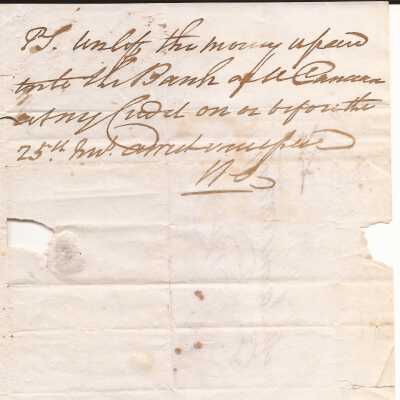 P.S. Unless the money is paid
into the Bank of U Canada
at my Credit on or before the
25th Inst. a writ